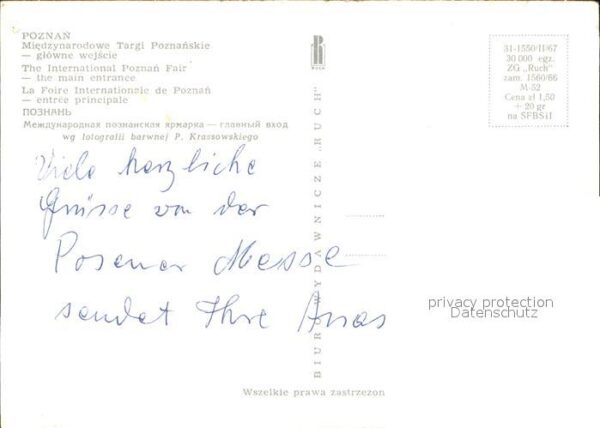 POZNAŃ
Międzynarodowe Targi Poznańskie
— główne wejście
The International Poznań Fair
— the main entrance
La Foire Internationale de Poznań
— entrée principale
ПОЗНАНЬ
Международная познанская ярмарка — главный вход
wg fotografii barwnej P. Krassowskiego
Viele herzliche
Grüsse von der
Posener Messe
sendet Ihre
BIURO WYDAWNICZE „RUCH"
31-1550/II/67
30 000 egz.
ZG „Ruch"
zam. 1560/66
M-52
Cena zł 1,50
+ 20 gr
na SFBSiI
privacy protection
Datenschutz
Wszelkie prawa zastrzeżon